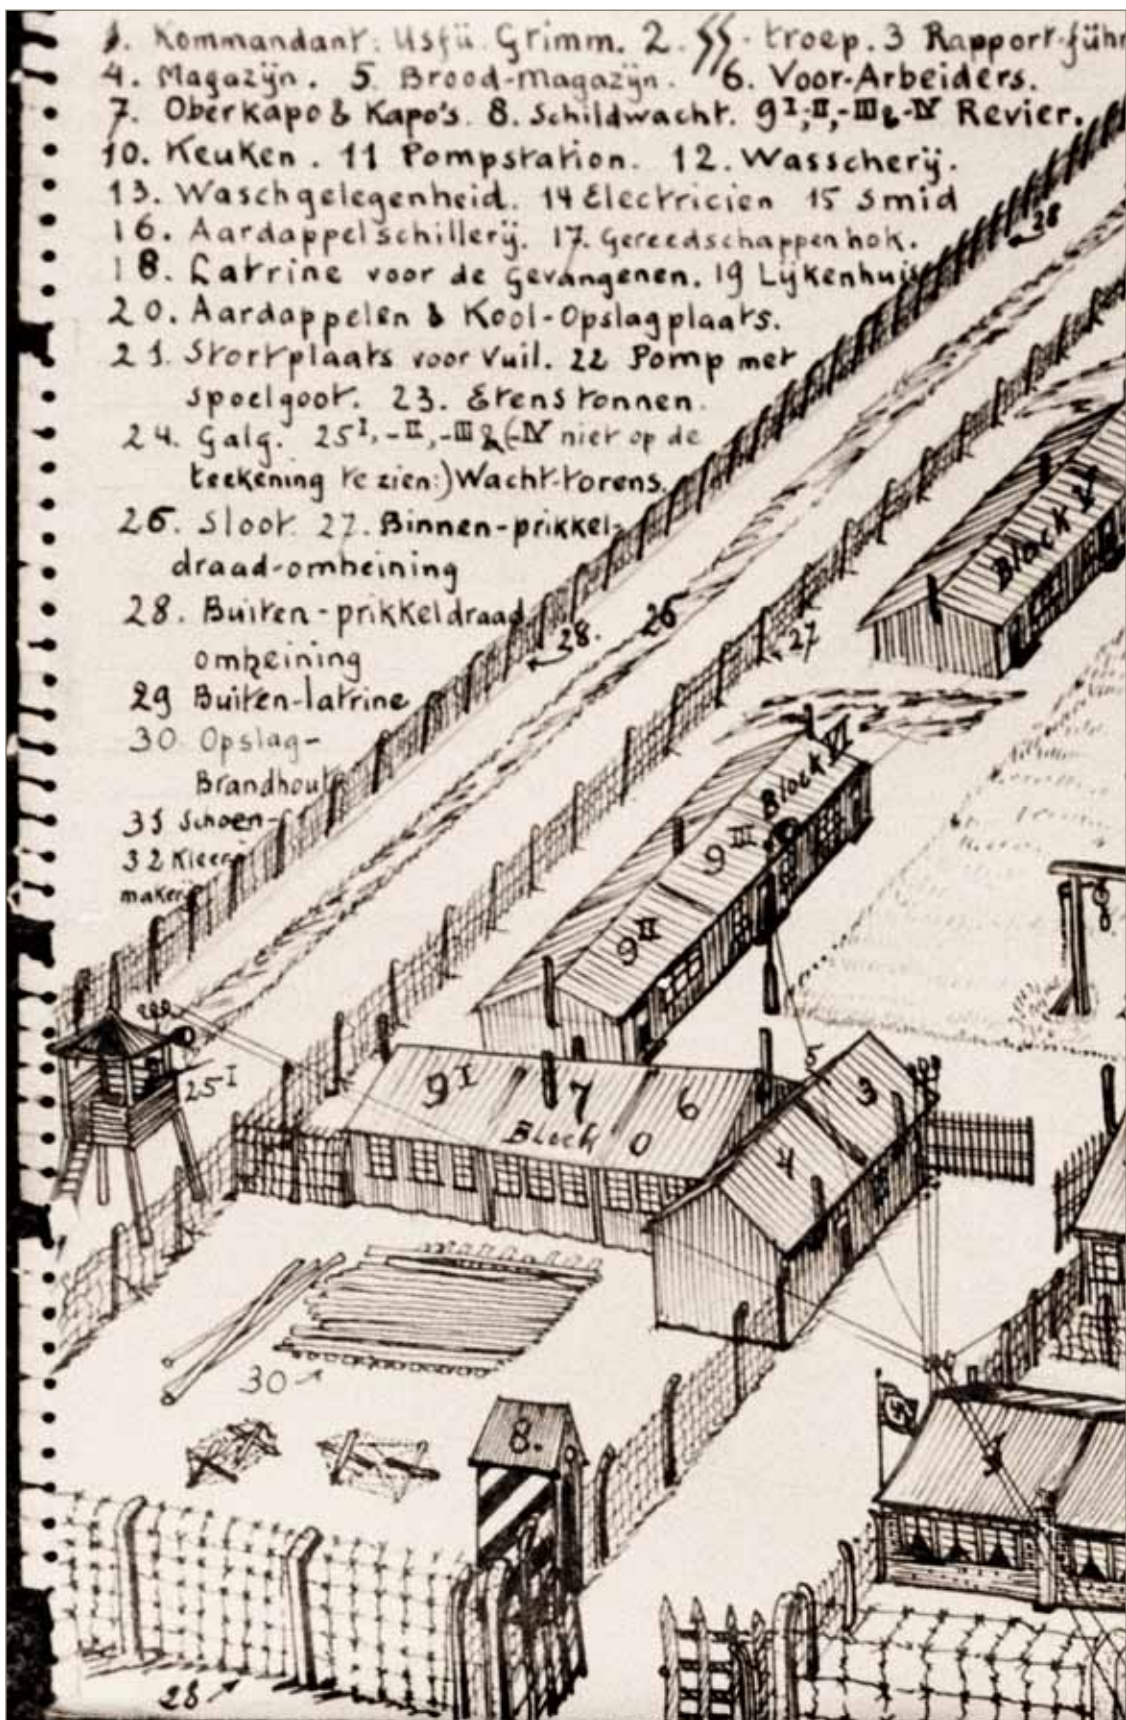 1. Kommandant: Usfü. Grimm. 2. SS-troep. 3 Rapport-führ
4. Magazijn. 5. Brood-magazijn. 6. Voor-Arbeiders.
7. Oberkapo & Kapo's. 8. Schildwacht. 9 I,-II,-III &-IV Revier.
10. Keuken. 11 Pompstation. 12. Wasscherij.
13. Waschgelegenheid. 14 Electricien 15 Smid
16. Aardappelschillerij. 17. Gereedschappenhok.
18. Latrine voor de Gevangenen. 19 Lijkenhuis
20. Aardappelen & Kool-Opslagplaats.
21. Stortplaats voor Vuil. 22 Pomp met
spoelgoot. 23. Etenstonnen.
24. Galg. 25 I,-II,-III &(-IV niet op de
teekening te zien:) Wacht-torens.
26. Sloot. 27. Binnen-prikkel-
draad-omheining
28. Buiten-prikkeldraad
omheining
29 Buiten-latrine
30 Opslag-
Brandhout
31 Schoen-
32 Kleer-
maker
28
Block V
28.
26
27
Block VI
9 III
9 II
25 I
9 I 7 6
Block 0
5 3
4
30
8.
1
28